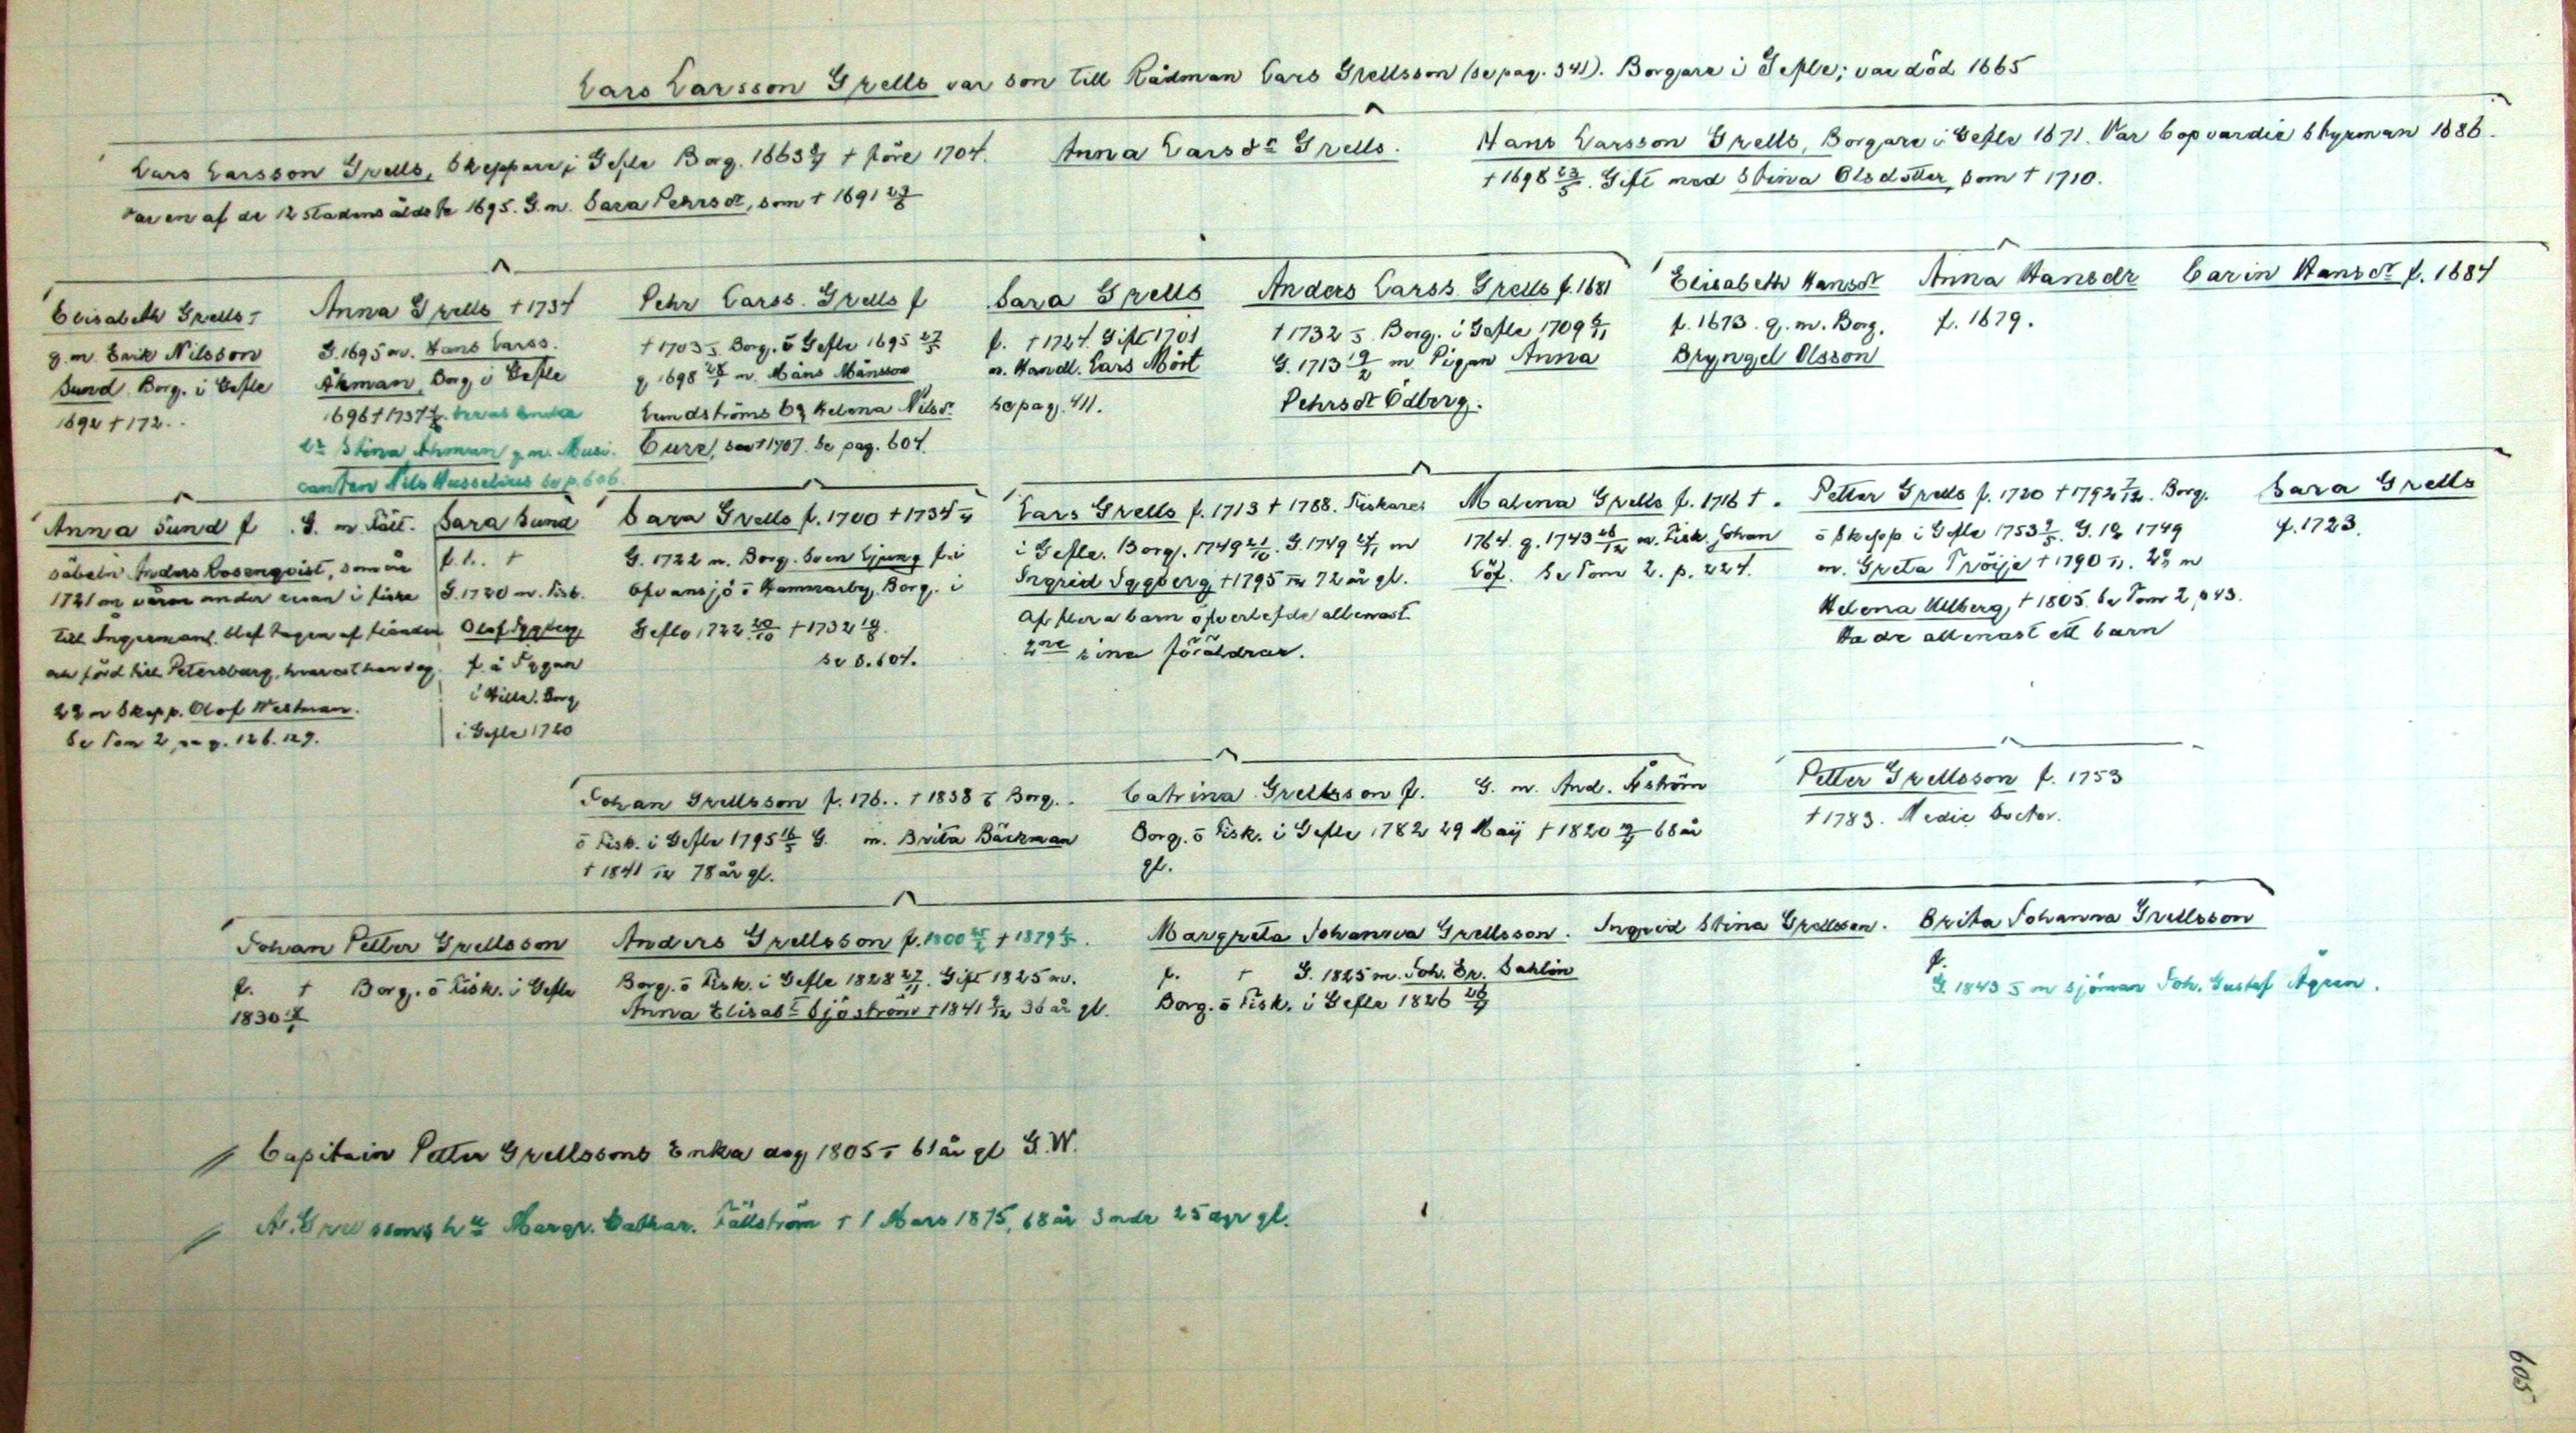 Lars Larsson Grells var son till Rådman Lars Grellsson (se pag. 341). Borgare i Gefle; var död 1665
Lars Larsson Grells, Skeppare i Gefle Borg. 1663 † före 1704.
var en af de 12 stadens äldste 1695. G.m. Sara Pehrsdr, som † 1691
Anna Larsdr Grells.
Hans Larsson Grells, Borgare i Gefle 1671. Var Copvardie Styrman 1686.
† 1698 23/5. Gift med Stina Olsdotter, som † 1710.
Elisabeth Grells
g.m. Erik Nilsson
Sund. Borg. i Gefle
1692 † 172..
Anna Grells † 1734
G. 1695 m. Hans Larss.
Åkman, Borg. i Gefle
1696 † 1737
dr Stina Åhman g.m. Musi-
canten Nils Husselius se p. 606
Pehr Larss. Grells f
† 1703 Borg. ō Gefle 1695 27/5
g 1698 m. Måns Månsson
Lundströms Helena Nilsdr
Cure, som † 1707. se pag. 604.
Sara Grells
f. † 1724. Gift 1701
m. Handl. Lars Mört
se pag. 411.
Anders Larss. Grells f. 1681
† 1732 5. Borg. i Gefle 1709 6/11
G. 1713 19/2 m Pigan Anna
Pehrsdr Ödberg.
Elisabeth Hansdr
f. 1673. g.m. Borg.
Bryngel Olsson
Anna Hansdr
f. 1679.
Carin Hansdr f. 1684
Anna Sund f . G. m. Fält-
säbeln Anders Rosenqvist, som år
1721 om våren under resan i
till Ingermanl. blef tagen af fienden
och förd till Petersburg, hvarest han dog.
2 g m Skepp. Olof Westman.
Se Tom 2, pag. 126. 129.
Sara Sund
f. 1.. †
G. 1720 m. Fisk.
Olof Iggberg
f. å Iggön
i Hille. Borg
i Gefle 1720
Sara Grells f. 1700 † 1734
G. 1722 m. Borg. Sven Ljung f. i
Ofvansjö ō Hammarby, Borg. i
Gefle 1722 20/10 † 1732
se s. 604.
Lars Grells f. 1713 † 1788. Fiskare
i Gefle. Borg. 1749 21/10. G. 1749 m
Ingrid Iggberg † 1795 72 år gl.
Af flera barn öfverlefde allenast
2ne sina föräldrar.
Malena Grells f. 1716 † .
1764. g. 1743 26/12 m. Fisk. Johan
Löf. Se Tom 2. p. 224.
Petter Grells f. 1720 † 1792 7/12. Borg.
ō Skepp i Gefle 1753 9/5. G. 1o 1749
m. Greta Tröije † 1790. 2o m
Helena Ullberg, † 1805. Se Tom 2 p 43.
Hade allenast ett barn
Sara Grells
f. 1723.
Johan Grellsson f. 176.. † 1838 Borg.
ō Fisk. i Gefle 1795 16/5 G. m. Brita Bäckman
† 1841 78 år gl.
Catrina Grellsson f. G. m. And. Åström
Borg. ō Fisk. i Gefle 1782 29 Maij † 1820 68 år
gl.
Petter Grellsson f. 1753
† 1783. Medic Doctor.
Johan Petter Grellsson
f. † Borg. ō Fisk. i Gefle
1830
Anders Grellsson f. 1800 † 1879
Borg. ō Fisk. i Gefle 1828 27/11. Gift 1825 m.
Anna Elisabt Sjöström † 1841 36 år gl.
Margreta Johanna Grellsson.
f. † G. 1825 m. Joh. Er. Sahlin
Borg. ō Fisk. i Gefle 1826
Ingrid Stina Grellsson.
Brita Johanna Grellsson
f.
G. 1843 5 m sjöman Joh. Gustaf Ågren.
Capitain Petter Grellssons Enka dog 1805 61 år gl G.W.
A. Grellssons hu Margr. Cathar. Fällström † 1 Mars 1875, 68 år 3 mdr 25 dgr gl.
605